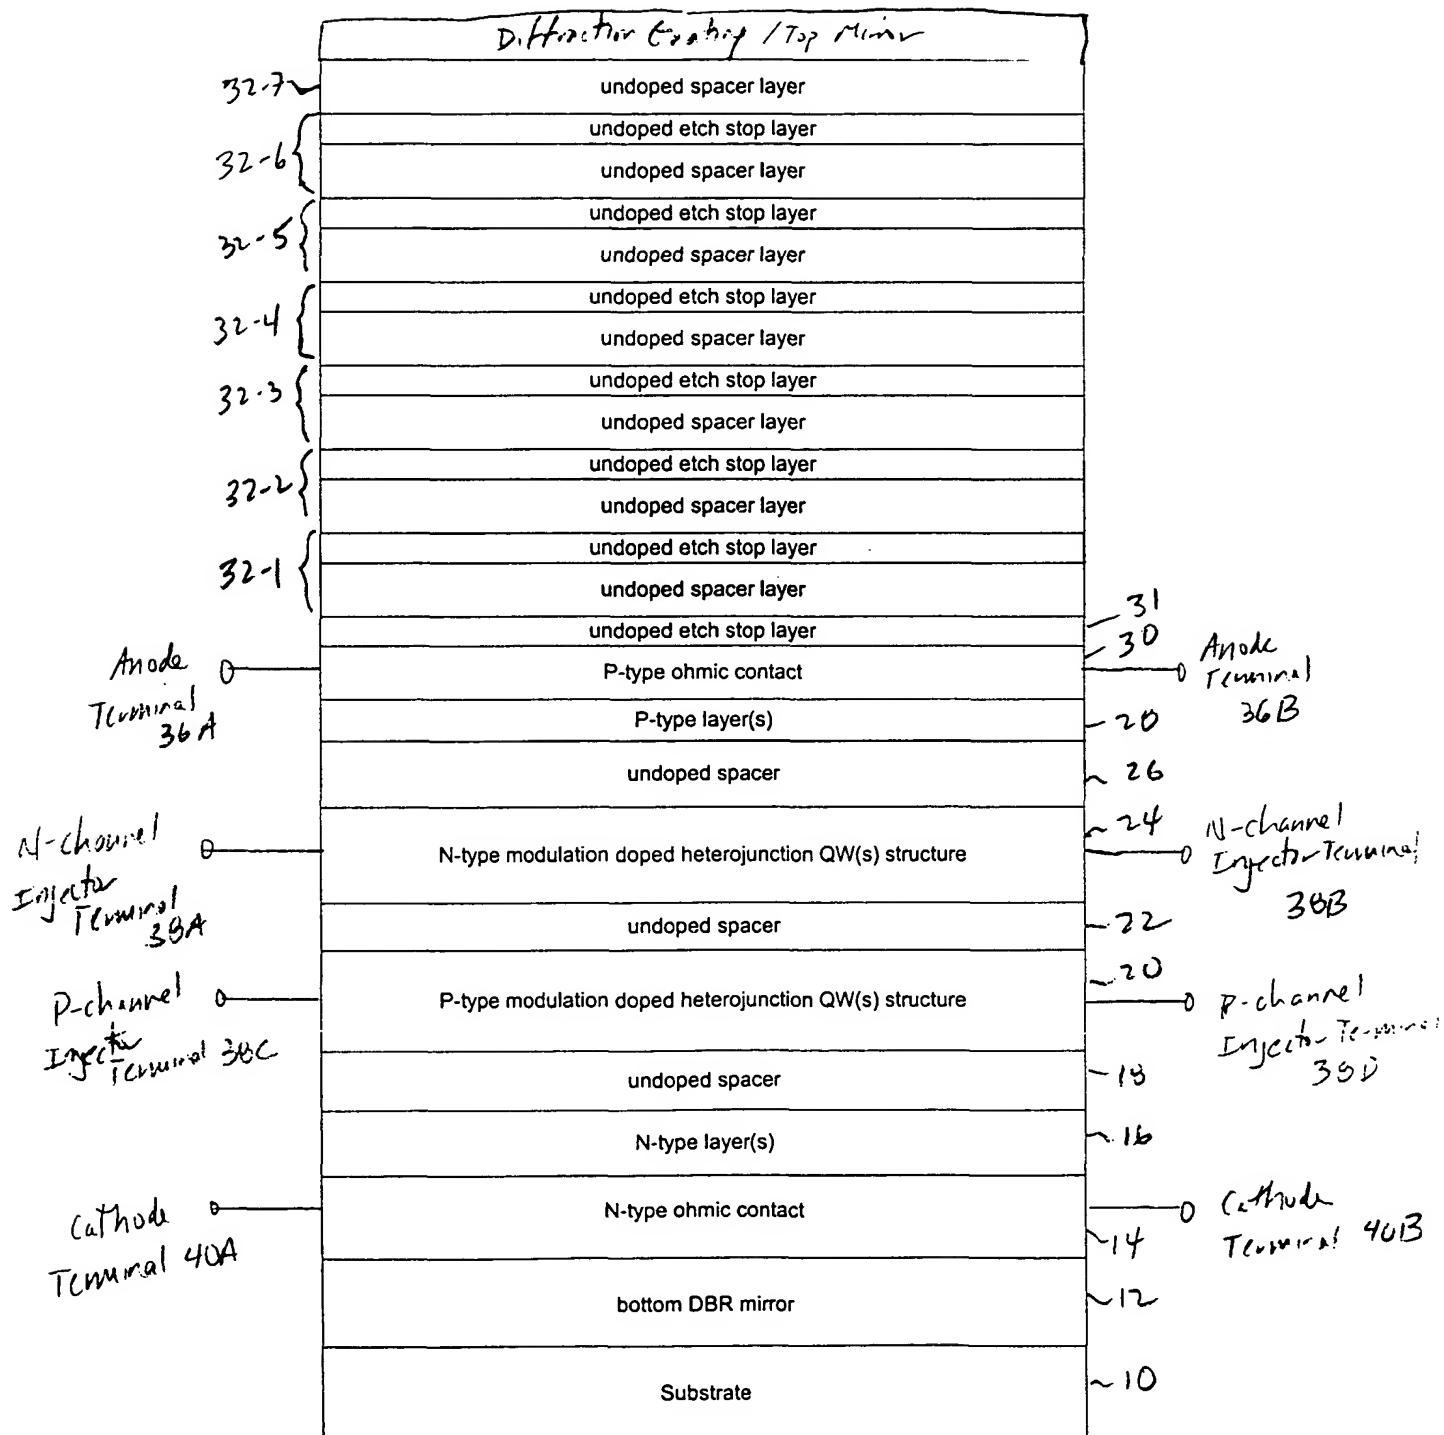 Diffraction Grating / Top Mirror
32-7 undoped spacer layer
undoped etch stop layer
32-6
undoped spacer layer
undoped etch stop layer
32-5
undoped spacer layer
undoped etch stop layer
32-4
undoped spacer layer
undoped etch stop layer
32-3
undoped spacer layer
undoped etch stop layer
32-2
undoped spacer layer
undoped etch stop layer
32-1
undoped spacer layer
31
undoped etch stop layer
30
Anode
Terminal
36A
P-type ohmic contact
Anode
Terminal
36B
P-type layer(s)
28
undoped spacer
26
24
N-channel
Injector
Terminal
38A
N-type modulation doped heterojunction QW(s) structure
N-channel
Injector Terminal
38B
undoped spacer
22
20
P-channel
Injector
Terminal 38C
P-type modulation doped heterojunction QW(s) structure
P-channel
Injector Terminal
38D
undoped spacer
18
N-type layer(s)
16
Cathode
Terminal 40A
N-type ohmic contact
Cathode
Terminal 40B
14
bottom DBR mirror
12
Substrate
10